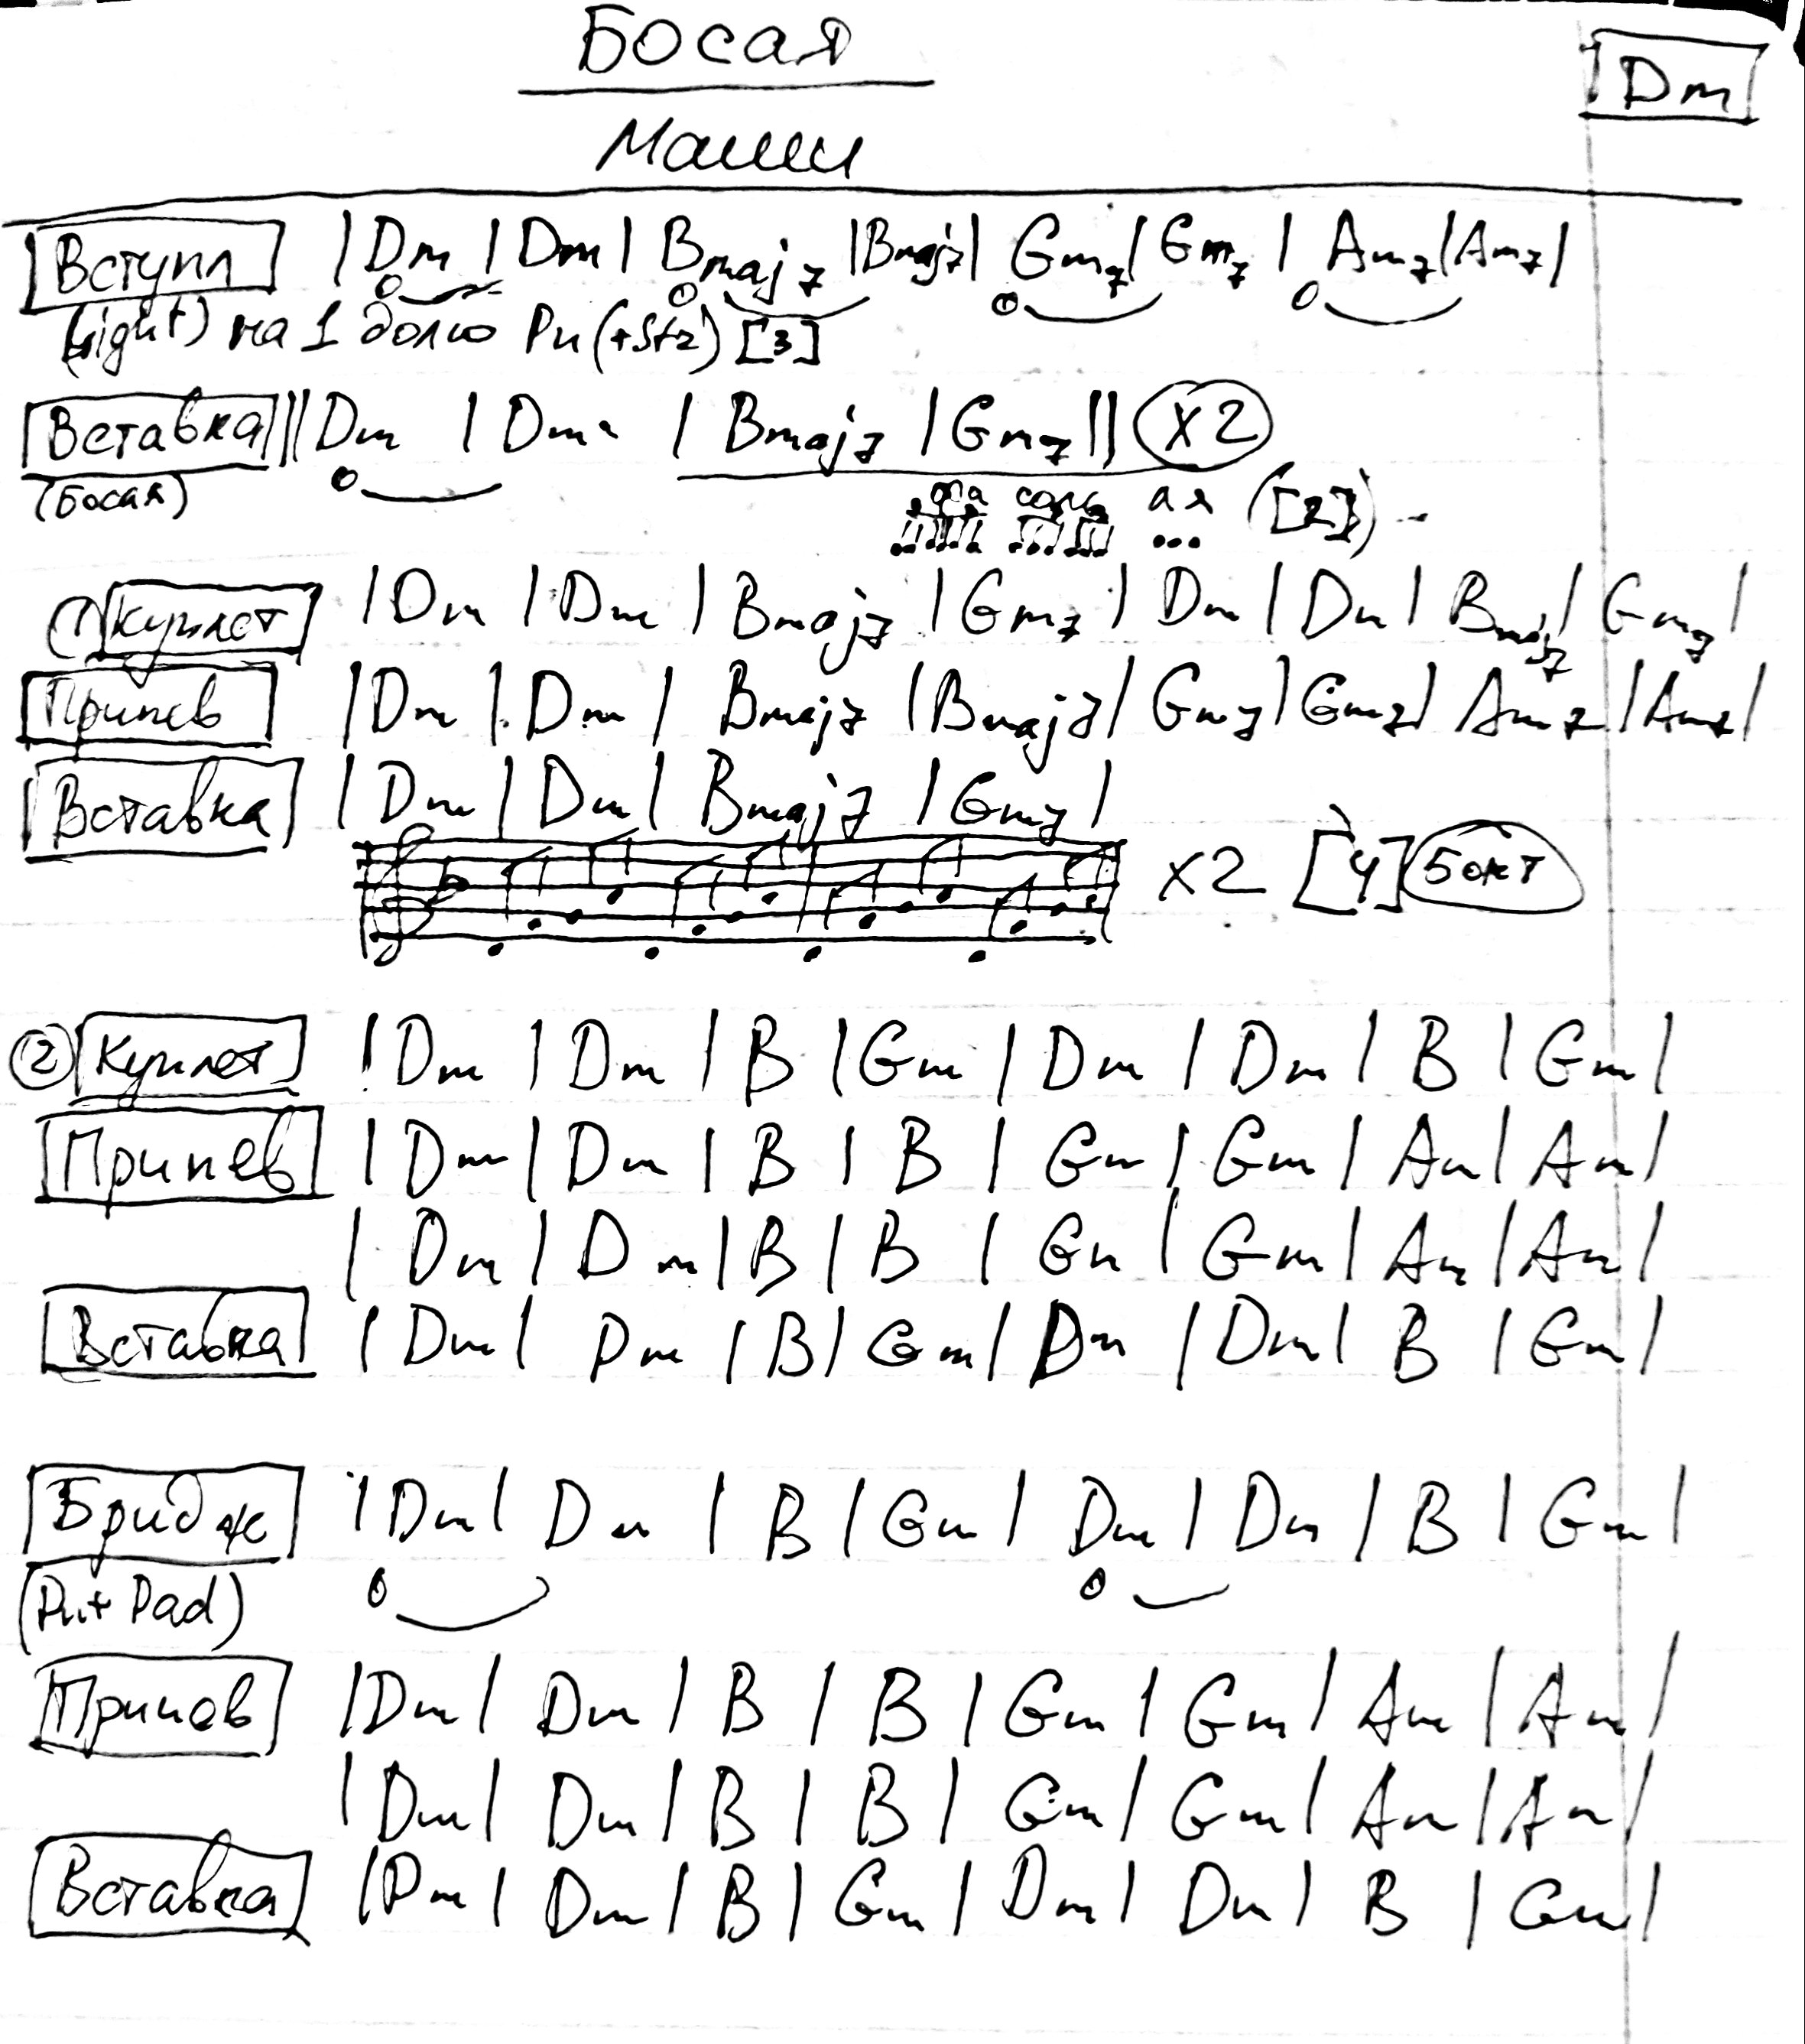 Босая
Dm
Маши
Вступл | Dm | Dm | Bmaj7 | Bmaj7 | Gm7 | Gm7 | Am7 | Am7 |
(right) на 1 долю Pn (+Str) [3]
Вставка || Dm | Dm | Bmaj7 | Gm7 || x2
(Босая)
соль ая ([2])
① Куплет | Dm | Dm | Bmaj7 | Gm7 | Dm | Dm | Bmaj7 | Gm7 |
Припев | Dm | Dm | Bmaj7 | Bmaj7 | Gm7 | Gm7 | Am7 | Am7 |
Вставка | Dm | Dm | Bmaj7 | Gm7 |
x2 [4]
② Куплет | Dm | Dm | B | Gm | Dm | Dm | B | Gm |
Припев | Dm | Dm | B | B | Gm | Gm | Am | Am |
| Dm | Dm | B | B | Gm | Gm | Am | Am |
Вставка | Dm | Dm | B | Gm | Dm | Dm | B | Gm |
Бридж | Dm | Dm | B | Gm | Dm | Dm | B | Gm |
(Pn+ Pad)
Припев | Dm | Dm | B | B | Gm | Gm | Am | Am |
| Dm | Dm | B | B | Gm | Gm | Am | Am |
Вставка | Dm | Dm | B | Gm | Dm | Dm | B | Gm |